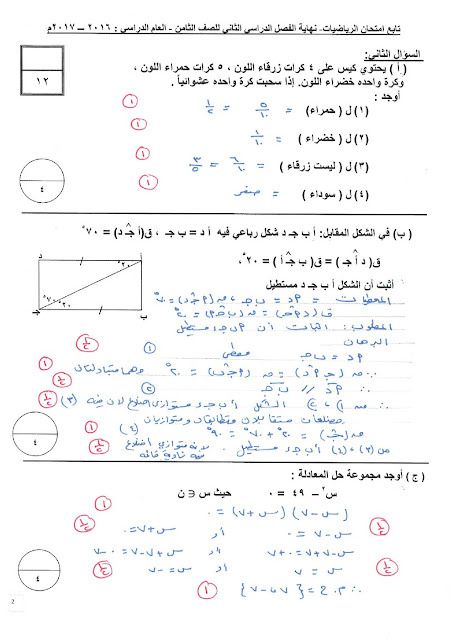 تابع امتحان الرياضيات - نهاية الفصل الدراسي الثاني للصف الثامن - العام الدراسي : ٢٠١٦ – ٢٠١٧م
السؤال الثاني:
١٢
( أ ) يحتوي كيس على ٤ كرات زرقاء اللون ، ٥ كرات حمراء اللون ،
وكرة واحده خضراء اللون. إذا سحبت كرة واحده عشوائياً .
أوجد :
(١) ل ( حمراء) = ٥/١٠ = ١/٢ ①
(٢) ل ( خضراء ) = ١/١٠ ①
(٣) ل ( ليست زرقاء ) = ٦/١٠ = ٣/٥ ①
(٤) ل ( سوداء ) = صفر ①
٤
( ب) في الشكل المقابل: أ ب جـ د شكل رباعي فيه أ د = ب جـ ، ق(أ جـ د) = ٧٠°
ق(د أ جـ) = ق(ب جـ أ ) = ٢٠° ،
أثبت أن الشكل أ ب جـ د مستطيل
د أ
٢٠°
٧٠° ٢٠°
جـ ب
المعطيات = ٢٠°
المطلوب : اثبات أن مستطيل
البرهان
معطى ①
= ٢٠° وهما متبادلتان ①
// ②
الشكل أ ب جـ د متوازي اضلاع لأن فيه (٣)
ضلعان متقابلان متطابقان ومتوازيان
= ٢٠° + ٧٠° = ٩٠° (٤)
من (٣) ، (٤) أ ب جـ د مستطيل لأنه متوازي اضلاع
فيه زاوية قائمة
٤
( ج ) أوجد مجموعة حل المعادلة :
س٢ – ٤٩ = ٠ حيث س ∈ ن
(س – ٧) (س + ٧) = ٠ ①
س – ٧ = ٠ أو س + ٧ = ٠
س – ٧ + ٧ = ٠ + ٧ أو س + ٧ – ٧ = ٠ – ٧
س = ٧ أو س = –٧
∴ م.ح = {٧ ، –٧} ①
٤
2